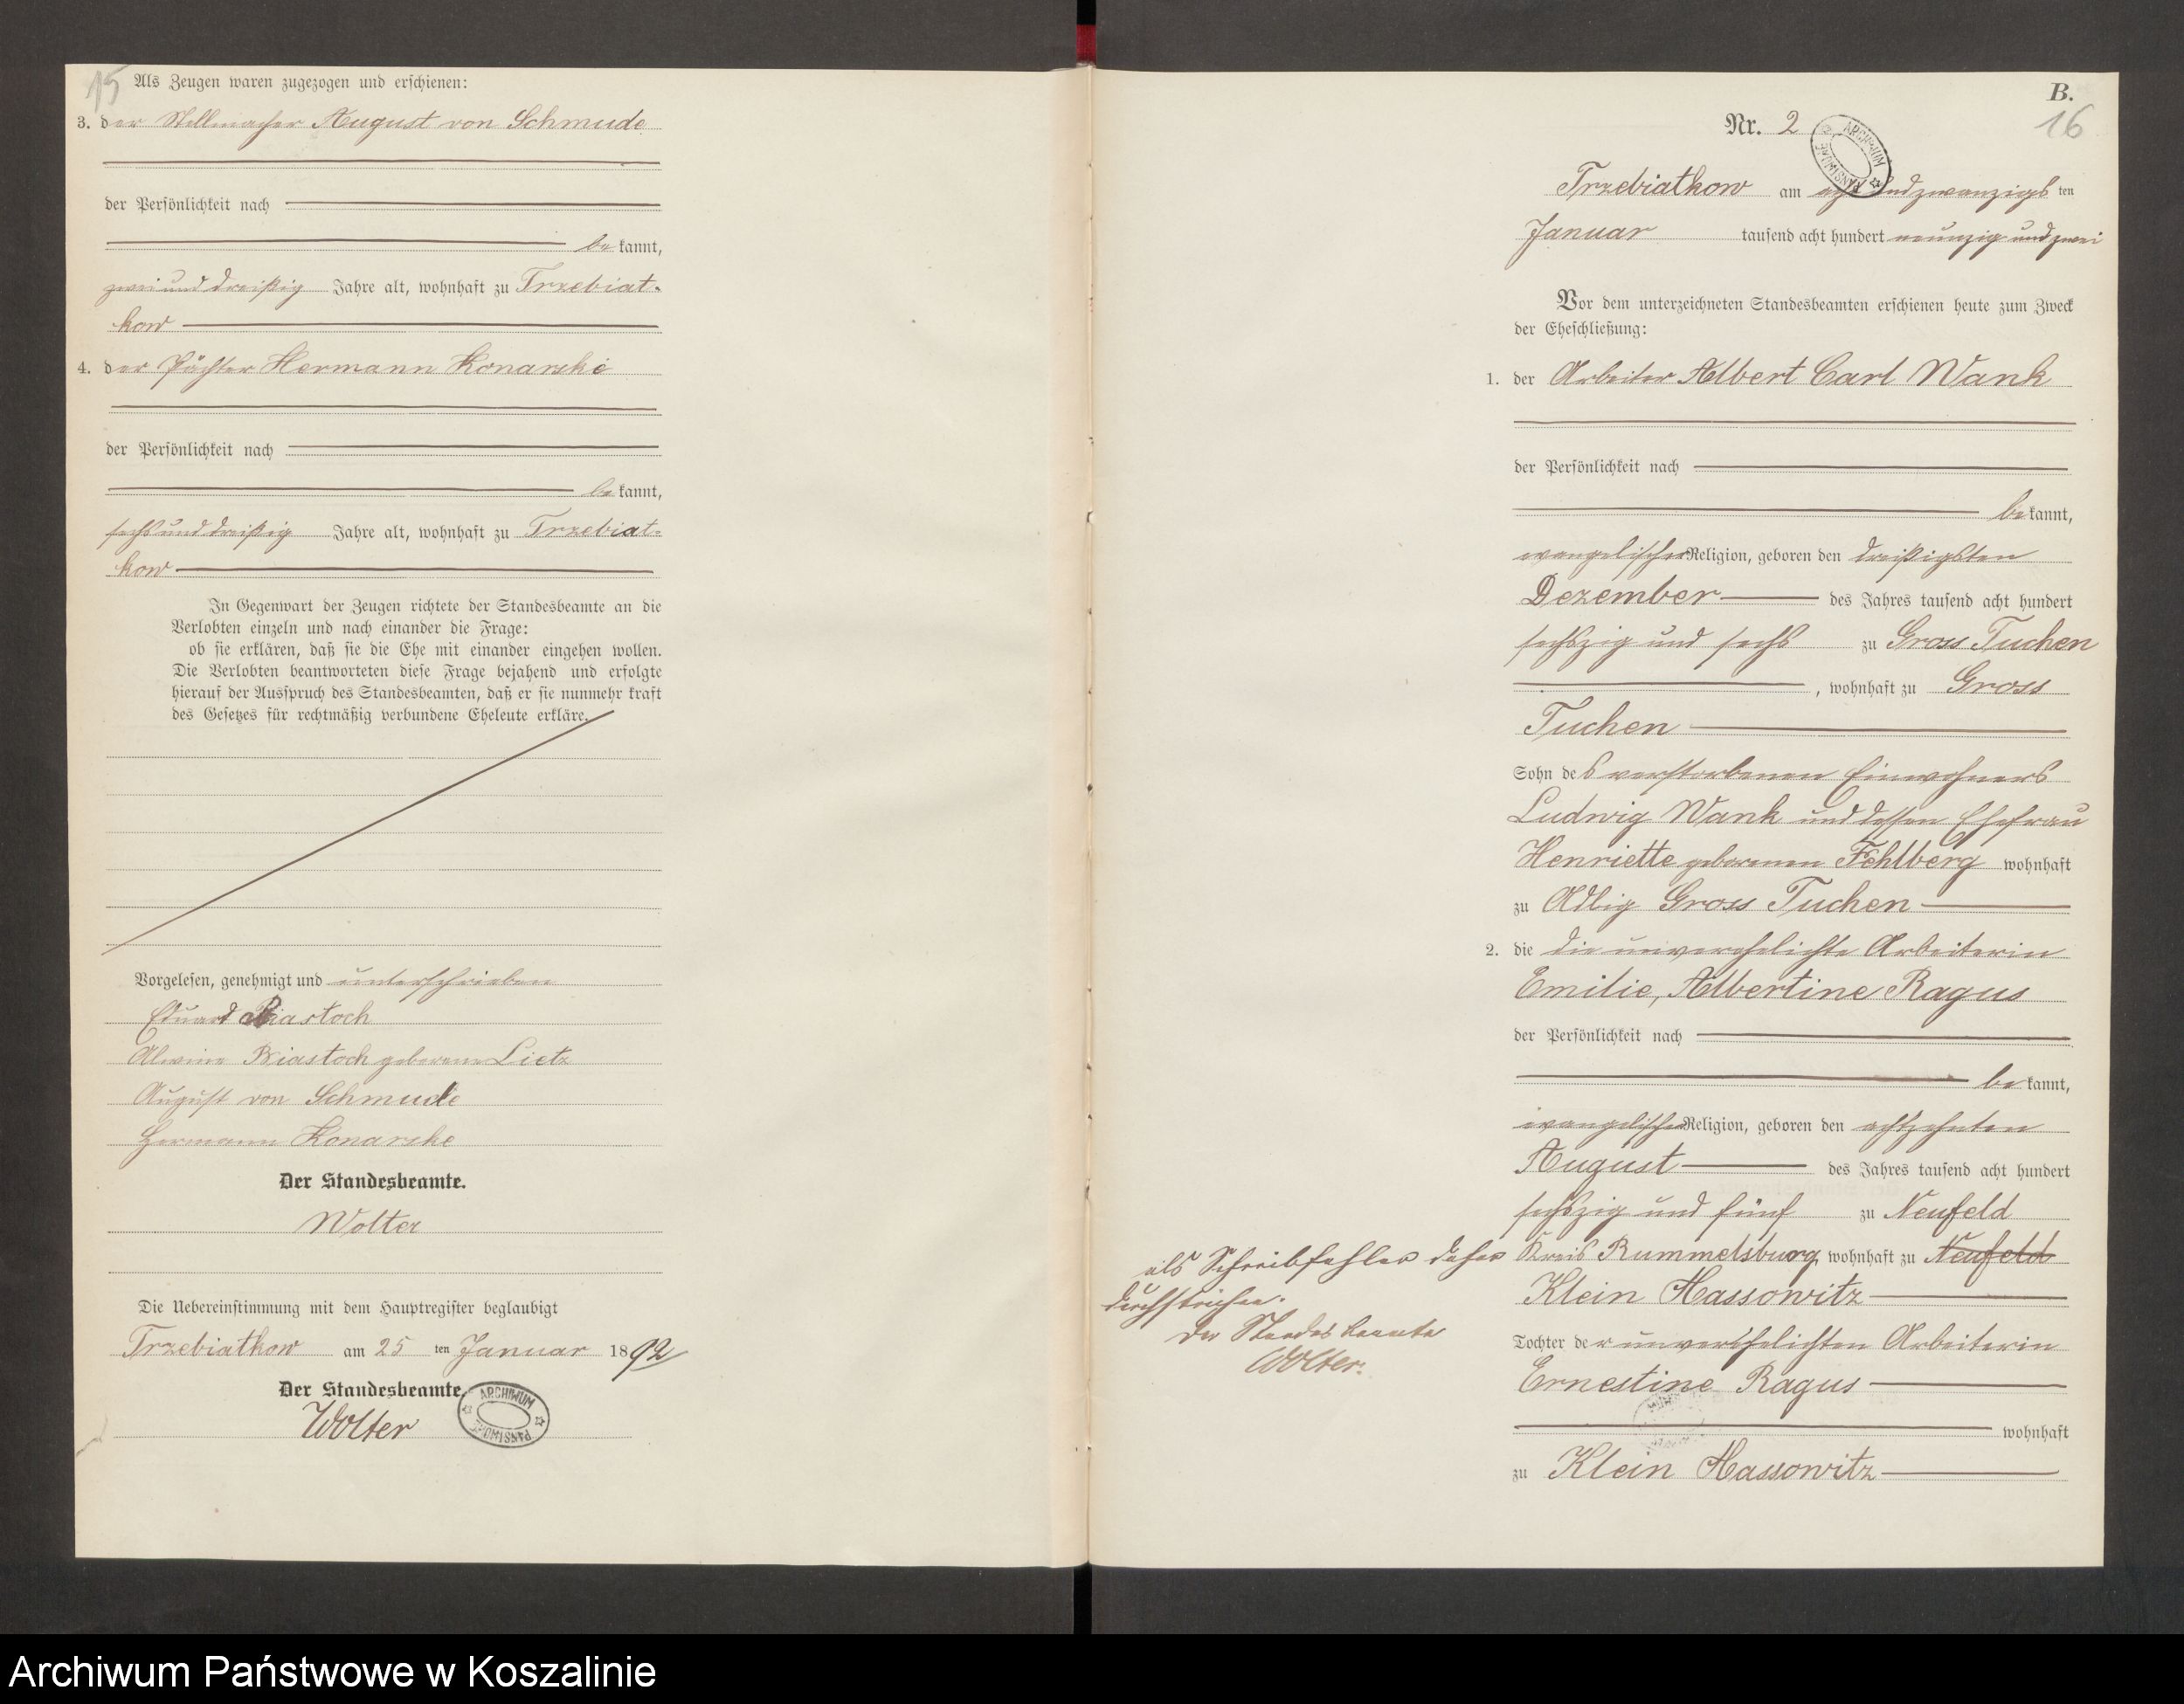 15
Als Zeugen waren zugezogen und erschienen:
3. der Stellmacher August von Schmude
der Persönlichkeit nach
bekannt,
zwei und dreißig Jahre alt, wohnhaft zu Trzebiat-
kow
4. der Pächter Hermann Konarske
der Persönlichkeit nach
bekannt,
sechs und dreißig Jahre alt, wohnhaft zu Trzebiat-
kow
In Gegenwart der Zeugen richtete der Standesbeamte an die
Verlobten einzeln und nach einander die Frage:
ob sie erklären, daß sie die Ehe mit einander eingehen wollen.
Die Verlobten beantworteten diese Frage bejahend und erfolgte
hierauf der Ausspruch des Standesbeamten, daß er sie nunmehr kraft
des Gesetzes für rechtmäßig verbundene Eheleute erkläre.
Vorgelesen, genehmigt und unterschrieben
Eduard Biastoch
Alwine Biastoch geborene Lietz
August von Schmude
Hermann Konarske
Der Standesbeamte.
Wolter
Die Uebereinstimmung mit dem Hauptregister beglaubigt
Trzebiatkow am 25 ten Januar 1892
Der Standesbeamte.
Wolter
ARCHIWUM PAŃSTWOWE
B.
16
Nr. 2
ARCHIWUM PAŃSTWOWE
Trzebiatkow am undzwanzigs ten
Januar tausend acht hundert neunzig und zwei
Vor dem unterzeichneten Standesbeamten erschienen heute zum Zweck
der Eheschließung:
1. der Arbeiter Albert Carl Wank
der Persönlichkeit nach
bekannt,
evangelischer Religion, geboren den dreißigsten
Dezember des Jahres tausend acht hundert
sechszig und sechs zu Gross Tuchen
, wohnhaft zu Gross
Tuchen
Sohn des verstorbenen Einwohners
Ludwig Wank und dessen Ehefrau
Henriette geborenen Fehlberg wohnhaft
zu Adlig Gross Tuchen
2. die die unverehelichte Arbeiterin
Emilie, Albertine Ragus
der Persönlichkeit nach
bekannt,
evangelischer Religion, geboren den achtzehnten
August des Jahres tausend acht hundert
sechszig und fünf zu Neufeld
Kreis Rummelsburg, wohnhaft zu Neufeld
Klein Massowitz
Tochter der unverehelichten Arbeiterin
Ernestine Ragus
wohnhaft
zu Klein Massowitz
als Schreibfehler daher
durchstrichen.
Der Standesbeamte
Wolter.
Archiwum Państwowe w Koszalinie